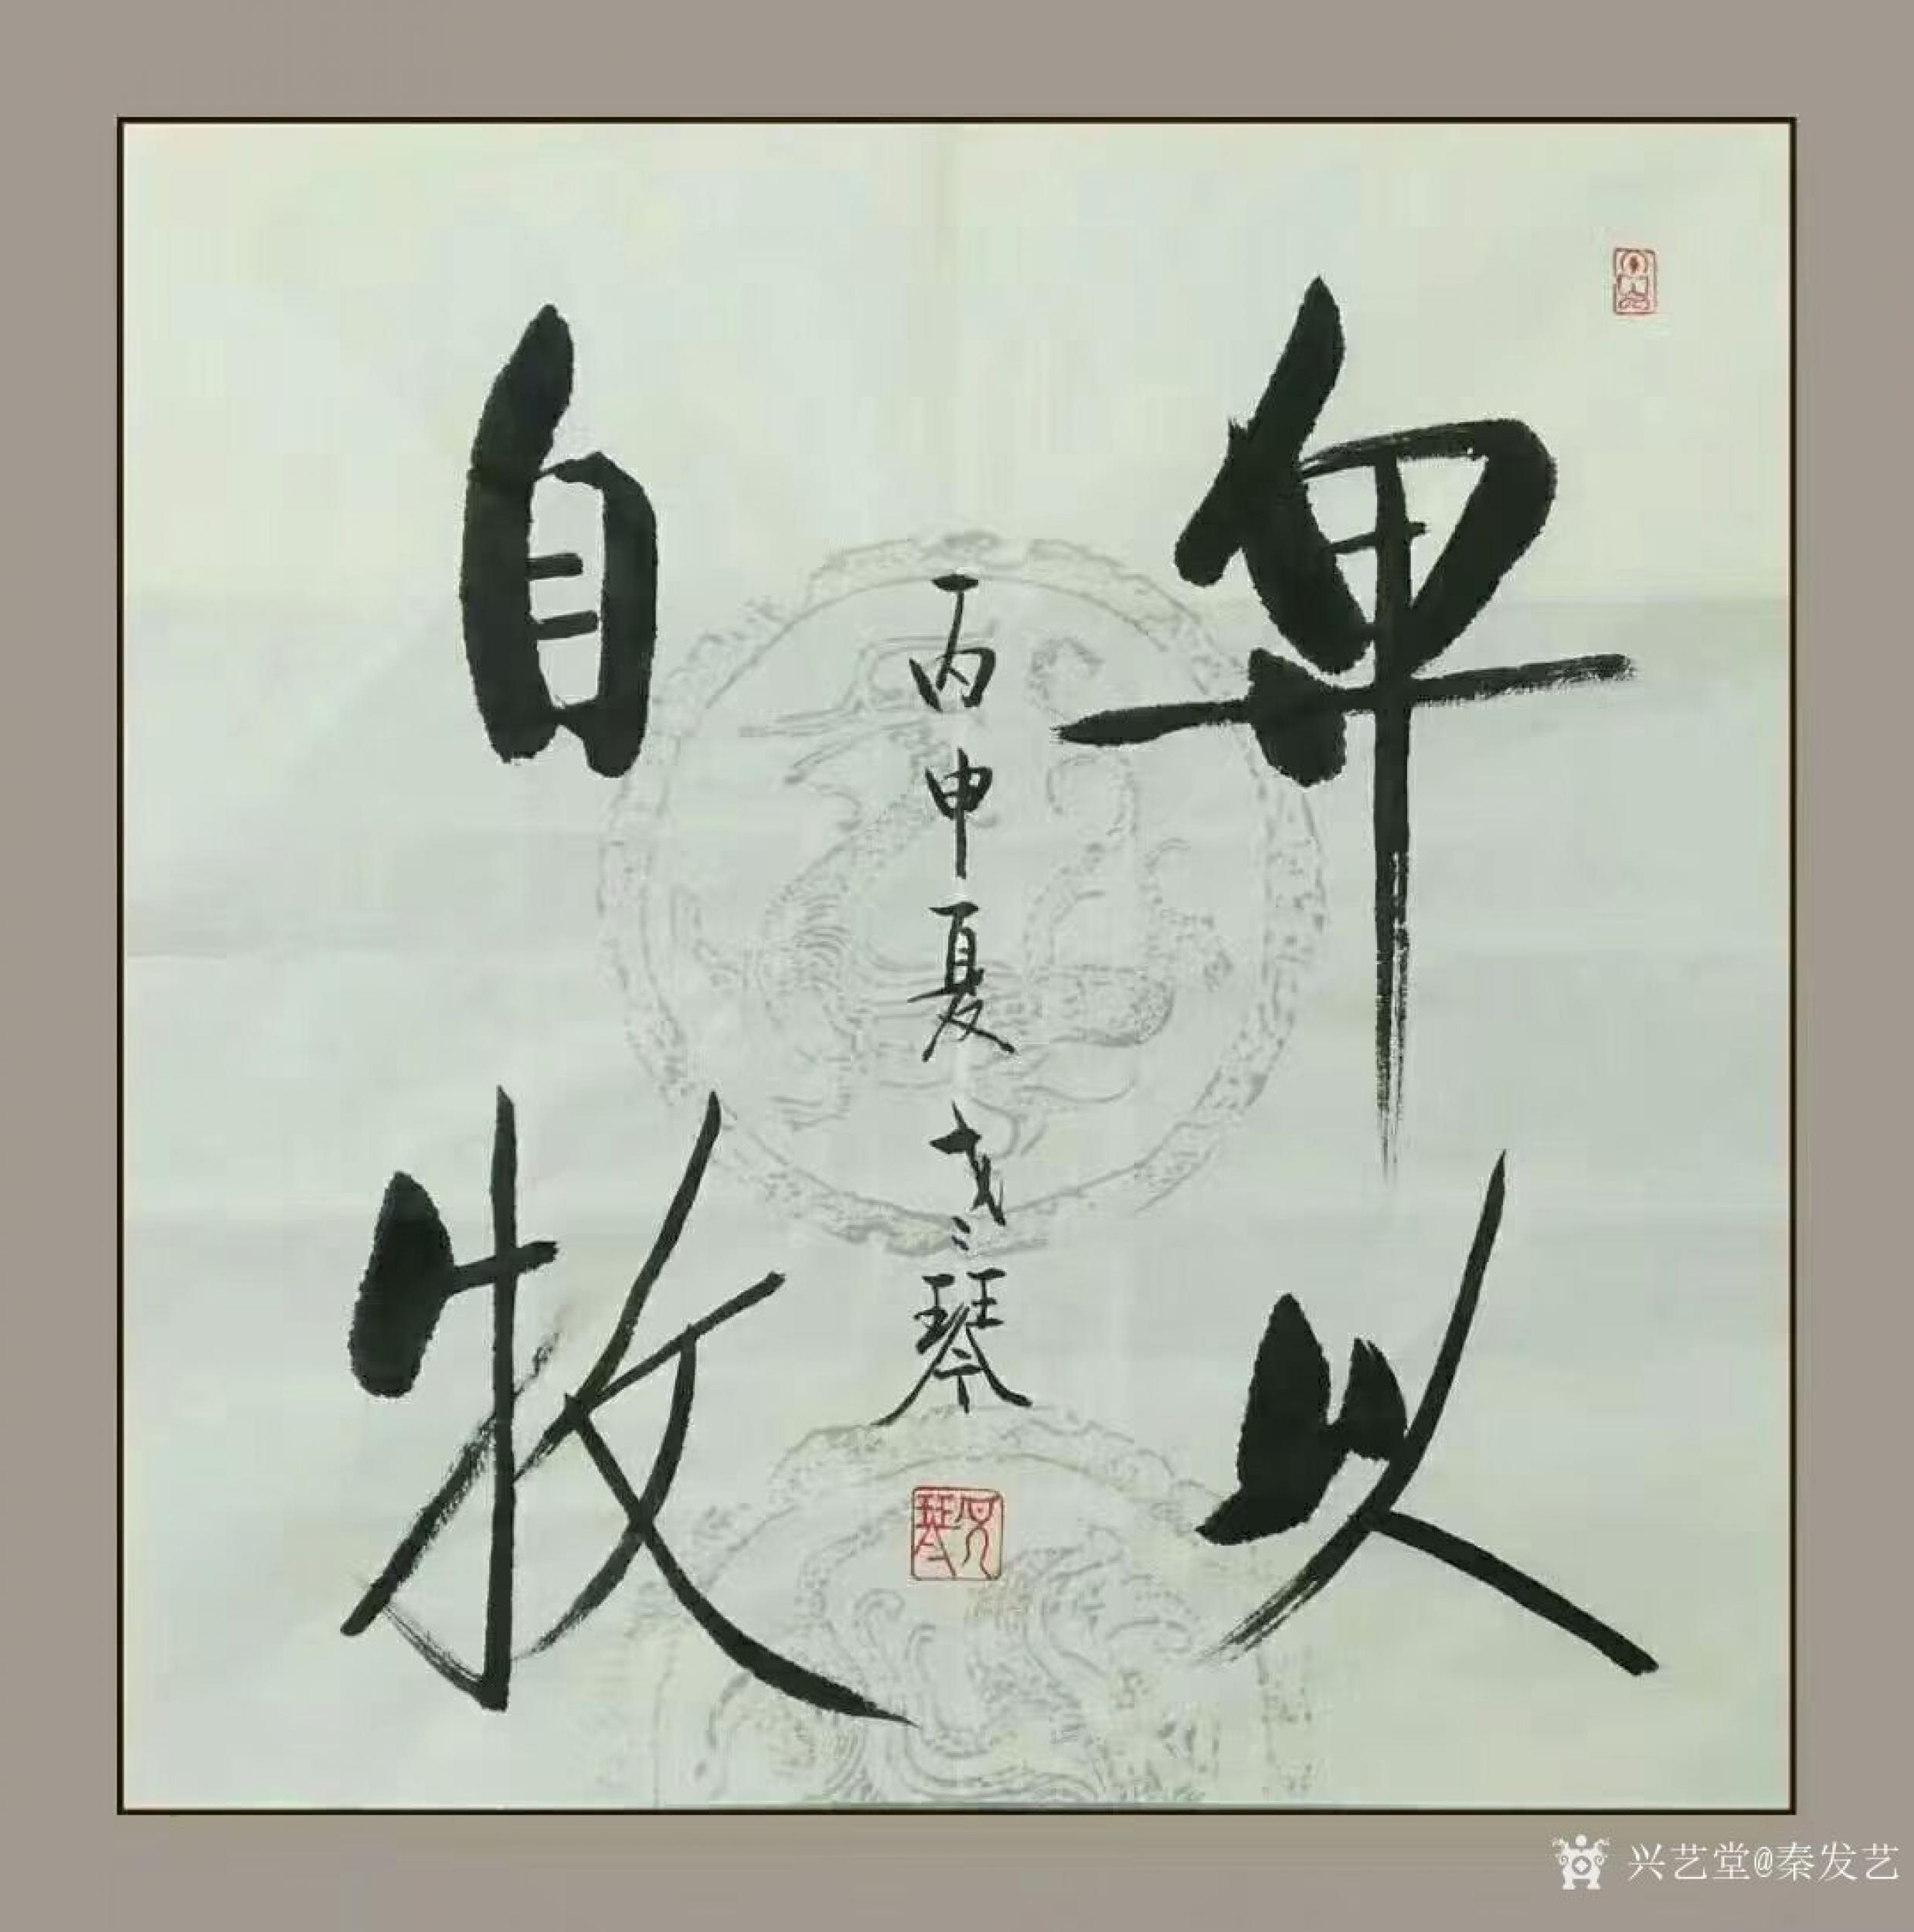 卑以
自牧
丙申夏琴
兴艺堂@秦发艺